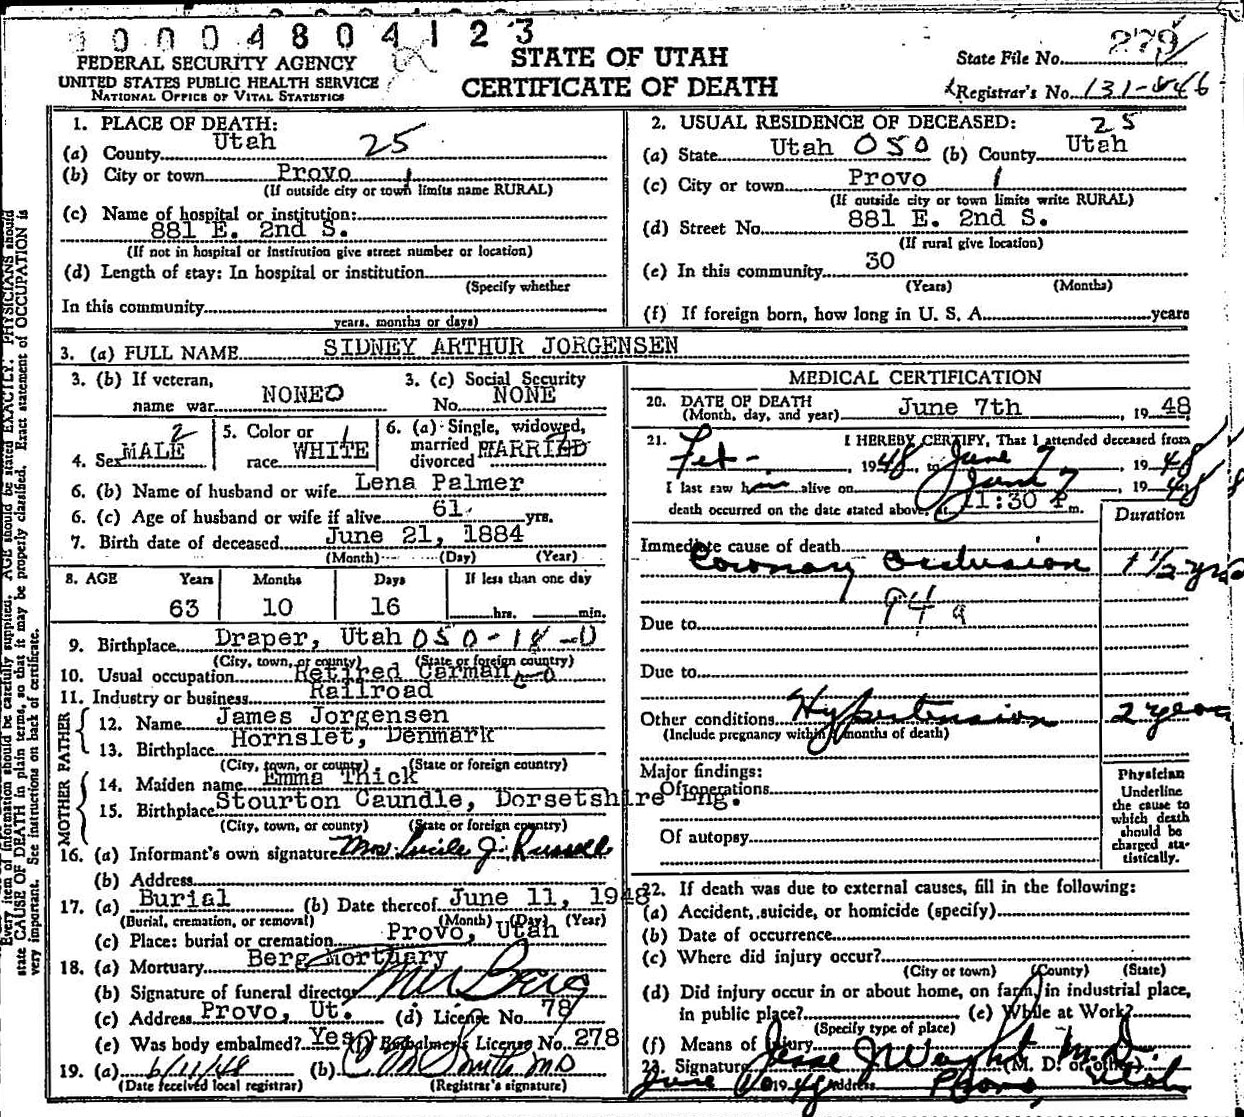 10004804123
FEDERAL SECURITY AGENCY
UNITED STATES PUBLIC HEALTH SERVICE
NATIONAL OFFICE OF VITAL STATISTICS
STATE OF UTAH
CERTIFICATE OF DEATH
State File No. 279
Registrar's No. 131-446
1. PLACE OF DEATH:
(a) County Utah 25
(b) City or town Provo 1
(If outside city or town limits name RURAL)
(c) Name of hospital or institution:
881 E. 2nd S.
(If not in hospital or institution give street number or location)
(d) Length of stay: In hospital or institution
(Specify whether
In this community
years, months or days)
2. USUAL RESIDENCE OF DECEASED: 25
(a) State Utah 050 (b) County Utah
(c) City or town Provo 1
(If outside city or town limits write RURAL)
(d) Street No. 881 E. 2nd S.
(If rural give location)
(e) In this community 30
(Years) (Months)
(f) If foreign born, how long in U. S. A. years
3. (a) FULL NAME SIDNEY ARTHUR JORGENSEN
3. (b) If veteran, name war NONE 0
3. (c) Social Security No. NONE
4. Sex MALE 2
5. Color or race WHITE 1
6. (a) Single, widowed, married divorced MARRIED
6. (b) Name of husband or wife Lena Palmer
6. (c) Age of husband or wife if alive 61 yrs.
7. Birth date of deceased June 21, 1884
(Month) (Day) (Year)
8. AGE Years Months Days If less than one day
63 10 16 hrs. min.
9. Birthplace Draper, Utah 050-18-0
(City, town, or county) (State or foreign country)
10. Usual occupation Retired Carman
11. Industry or business Railroad
FATHER
12. Name James Jorgensen
13. Birthplace Hornslet, Denmark
(City, town, or county) (State or foreign country)
MOTHER
14. Maiden name Emma Thick
15. Birthplace Stourton Caundle, Dorsetshire Eng.
(City, town, or county) (State or foreign country)
16. (a) Informant's own signature Mrs. Lucile J. Russell
(b) Address
17. (a) Burial (b) Date thereof June 11, 1948
(Burial, cremation, or removal) (Month) (Day) (Year)
(c) Place: burial or cremation Provo, Utah
18. (a) Mortuary Berg Mortuary
(b) Signature of funeral director Berg
(c) Address Provo, Ut. (d) License No. 78
(e) Was body embalmed? Yes (f) Embalmer's License No. 278
19. (a) 6/11/48 (b) C M Smith MD
(Date received local registrar) (Registrar's signature)
MEDICAL CERTIFICATION
20. DATE OF DEATH
(Month, day, and year) June 7th, 19 48
21. I HEREBY CERTIFY, That I attended deceased from
Feb-, 19 48, to June 7, 19 48
I last saw h im alive on June 7, 19 48
death occurred on the date stated above, at 11:30 P.m.
Duration
Immediate cause of death
Coronary Occlusion 1 1/2 yrs
94 a
Due to
Due to
Other conditions Hypertension 2 years
(Include pregnancy within 3 months of death)
Major findings:
Of operations
Of autopsy
Physician
Underline
the cause to
which death
should be
charged sta-
tistically.
22. If death was due to external causes, fill in the following:
(a) Accident, suicide, or homicide (specify)
(b) Date of occurrence
(c) Where did injury occur?
(City or town) (County) (State)
(d) Did injury occur in or about home, on farm, in industrial place,
in public place? (e) While at Work?
(Specify type of place)
(f) Means of injury
23. Signature Jesse J Weight M.D.
(M. D. or other)
June 10 1948 Address Provo, Utah
Every item of information should be carefully supplied. AGE should be stated EXACTLY. PHYSICIANS should
state CAUSE OF DEATH in plain terms, so that it may be properly classified. Exact statement of OCCUPATION is
very important. See instructions on back of certificate.